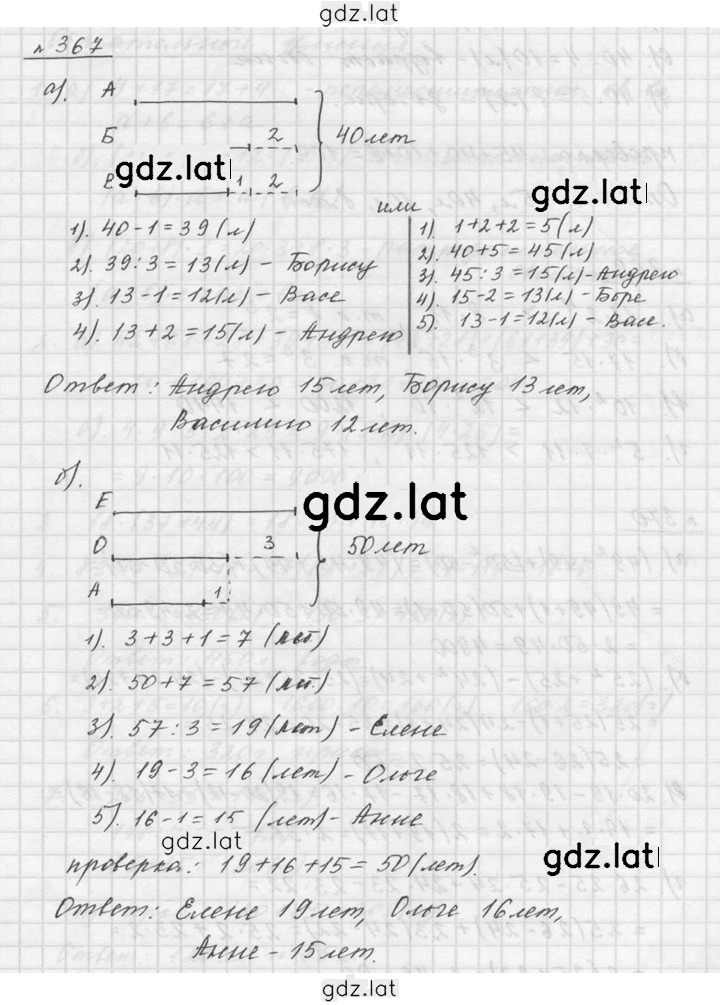 gdz.lat
№ 367
а). А
Б 2 40 лет
gdz.lat gdz.lat
В 1 2
или
1). 40 - 1 = 39 (л) 1). 1+2+2 = 5 (л)
2). 39 : 3 = 13 (л) - Борису 2). 40+5 = 45 (л)
3). 13 - 1 = 12 (л) - Васе 3). 45 : 3 = 15 (л) - Андрею
4). 13 + 2 = 15 (л) - Андрею 4). 15 - 2 = 13 (л) - Боре
5). 13 - 1 = 12 (л) - Васе.
Ответ: Андрею 15 лет, Борису 13 лет,
Василию 12 лет.
б).
Е
gdz.lat
О 3 50 лет
А 1
1). 3 + 3 + 1 = 7 (лет)
2). 50 + 7 = 57 (лет)
3). 57 : 3 = 19 (лет) - Елене
4). 19 - 3 = 16 (лет) - Ольге
5). 16 - 1 = 15 (лет) - Анне
gdz.lat gdz.lat
проверка: 19 + 16 + 15 = 50 (лет).
Ответ: Елене 19 лет, Ольге 16 лет,
Анне - 15 лет.
gdz.lat